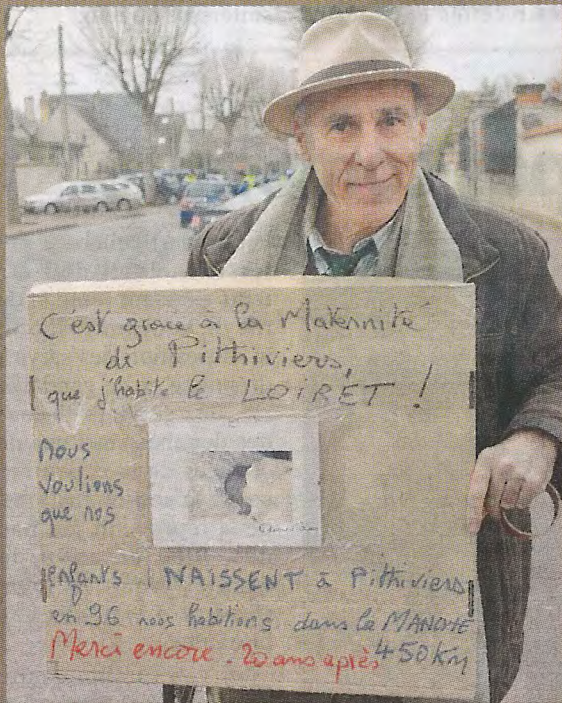 C'est grace à la Maternité
de Pithiviers,
que j'habite le LOIRET !
nous
voulions
que nos
enfants NAISSENT à Pithiviers
en 96 nous habitions dans la MANCHE
450 Km
Merci encore. 20 ans après